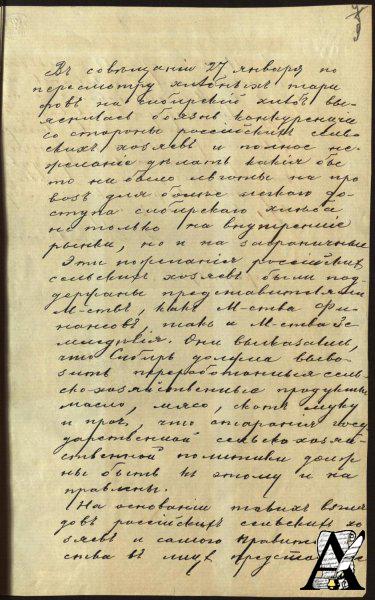 Въ совѣщаніи 27 января по
пересмотру хлѣбныхъ тари
фовъ на сибирскій хлѣбъ вы-
яснилась боязнь конкуренціи
со стороны россійскихъ сель-
скихъ хозяевъ и полное не-
желаніе дѣлать какія бы
то ни было льготы на про
возъ для болѣе легкаго до-
ступа сибирскаго хлѣба
не только на внутренніе
рынки, но и на заграничные
Эти пожеланія россійскихъ
сельскихъ хозяевъ были под-
держаны представителями
М-ствъ, какъ М-ства Фи-
нансовъ, такъ и М-ства Зе
мледѣлія. Они высказали,
что Сибирь должна выво-
зить переработанные сель-
ско-хозяйственные продукты
масло, мясо, скотъ, муку
и проч., что старанія госу
дарственной сельско-хозяй-
ственной политики долж
ны быть къ этому и на
правлены.
На основаніи такихъ взгля
довъ россійскихъ сельскихъ хо
зяевъ и самого правитель
ства въ лицѣ